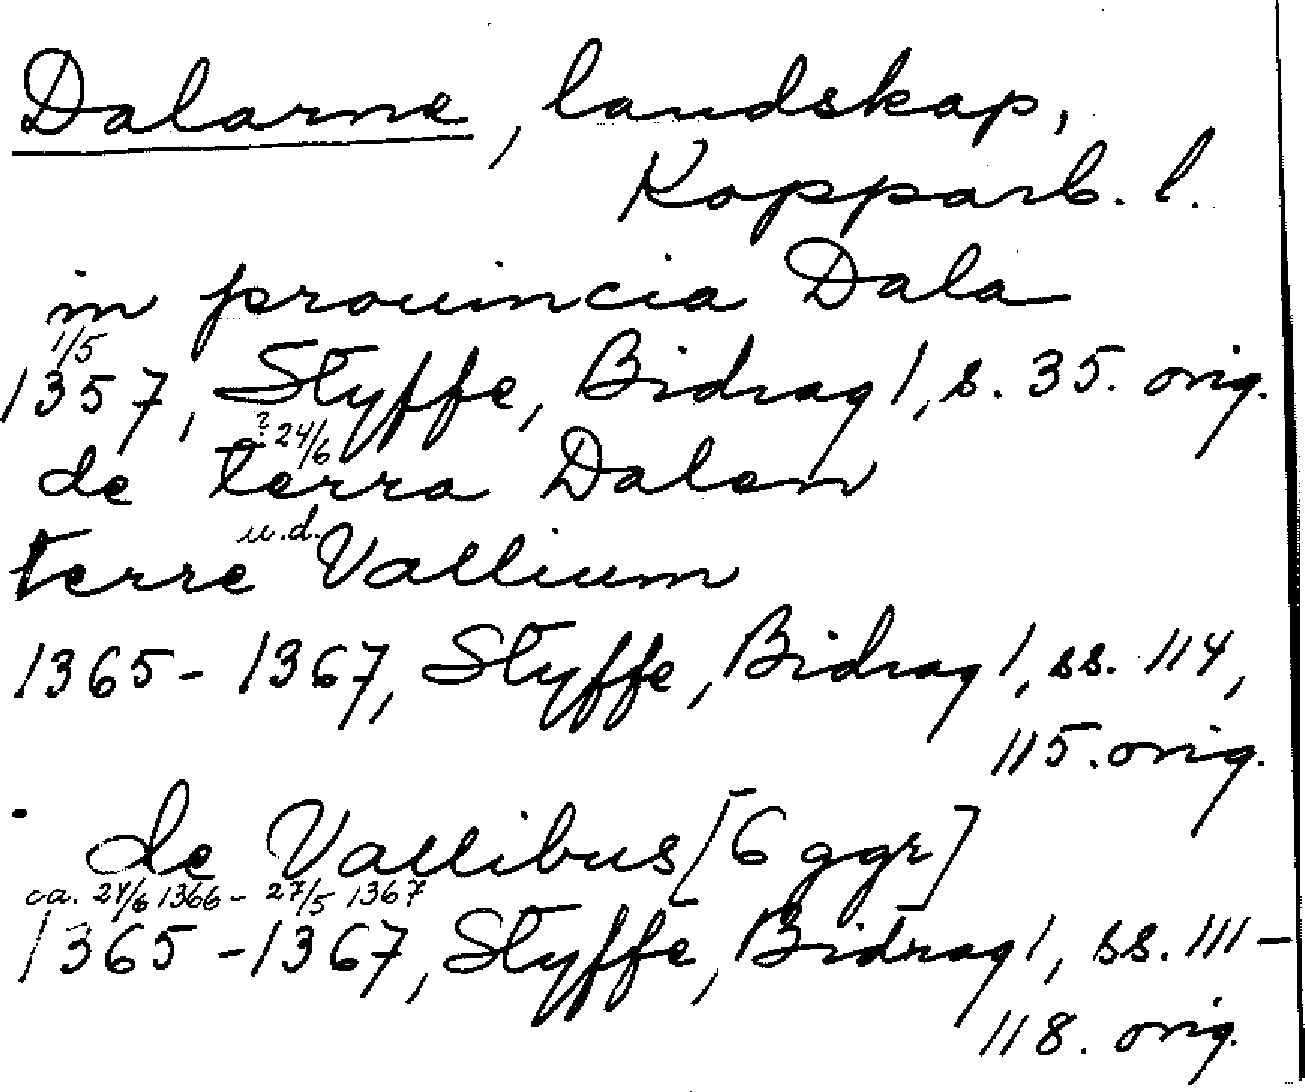 Dalarne, landskap,
Kopparb. l.
in prouincia Dala
1/5
1357, Styffe, Bidrag 1, s. 35. orig.
? 24/6
de terra Dalem
u.d.
terre Vallium
1365-1367, Styffe, Bidrag 1, ss. 114,
115. orig.
de Vallibus [6 ggr]
ca. 24/6 1366 - 27/5 1367
1365-1367, Styffe, Bidrag 1, ss. 111-
118. orig.